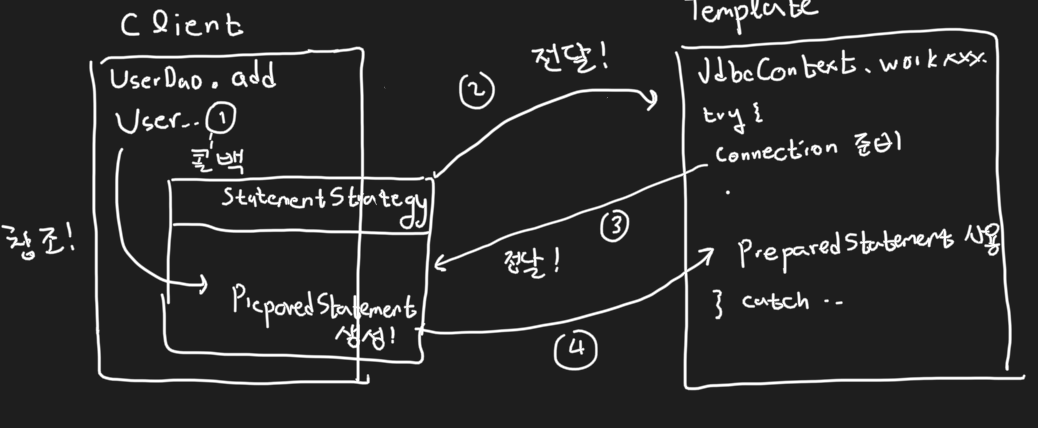 Client
UserDao.add
User.. ①
콜백
StatementStrategy
참조!
PreparedStatement
생성!
② 전달!
③
전달!
④
Template
JdbcContext.workxxx.
try {
Connection 준비
.
PreparedStatement 사용
} catch ..